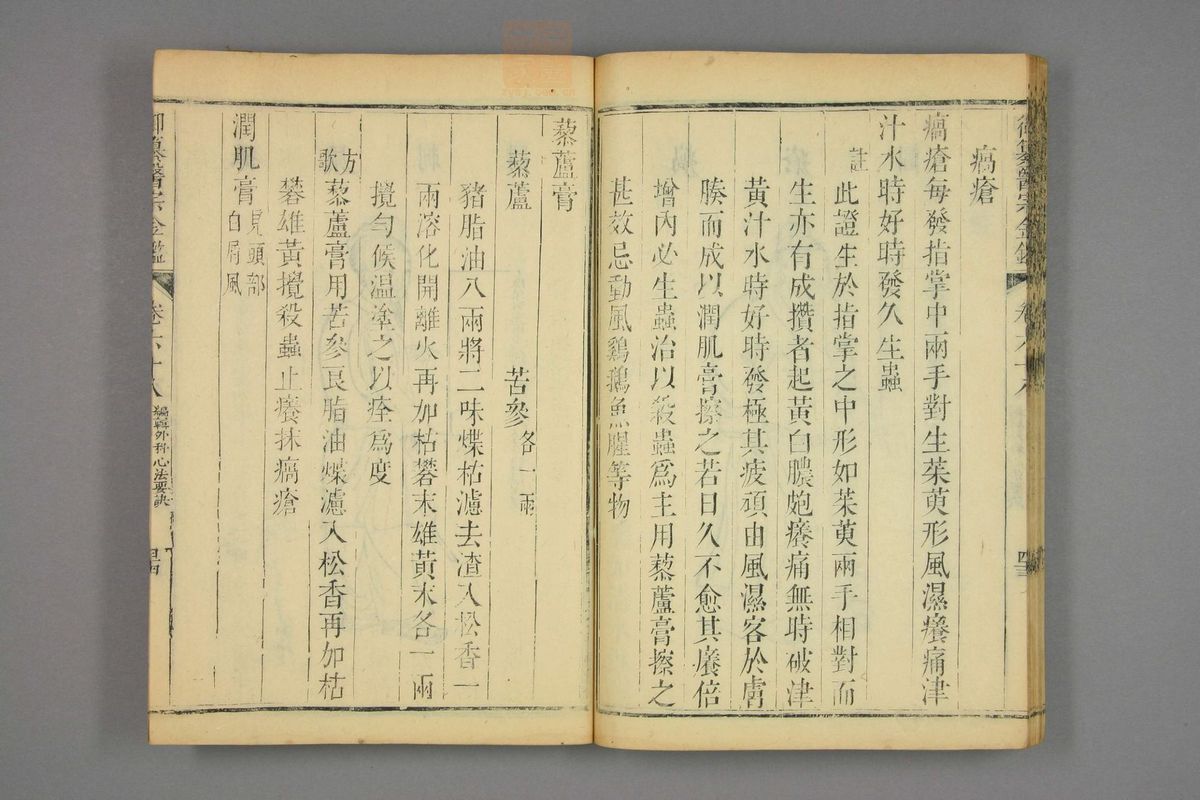 瘑瘡
瘑瘡每發指掌中兩手對生茱萸形風濕癢痛津
汁水時好時發久生蟲
註
此證生於指掌之中形如茱萸兩手相對而
生亦有成攢者起黃白膿皰癢痛無時破津
黃汁水時好時發極其疲頑由風濕客於膚
腠而成以潤肌膏擦之若日久不愈其癢倍
增內必生蟲治以殺蟲爲主用藜蘆膏擦之
甚效忌動風鷄鵝魚腥等物
藜蘆膏
藜蘆 苦參各一兩
豬脂油八兩將二味煠枯濾去渣入松香一
兩溶化開離火再加枯礬末雄黃末各一兩
攪勻候温塗之以痊爲度
方歌
藜蘆膏用苦參良脂油煠濾入松香再加枯
礬雄黃攪殺蟲止癢抹瘑瘡
潤肌膏見頭部
白屑風
御纂醫宗金鑑 卷六十八 編輯外科心法要訣